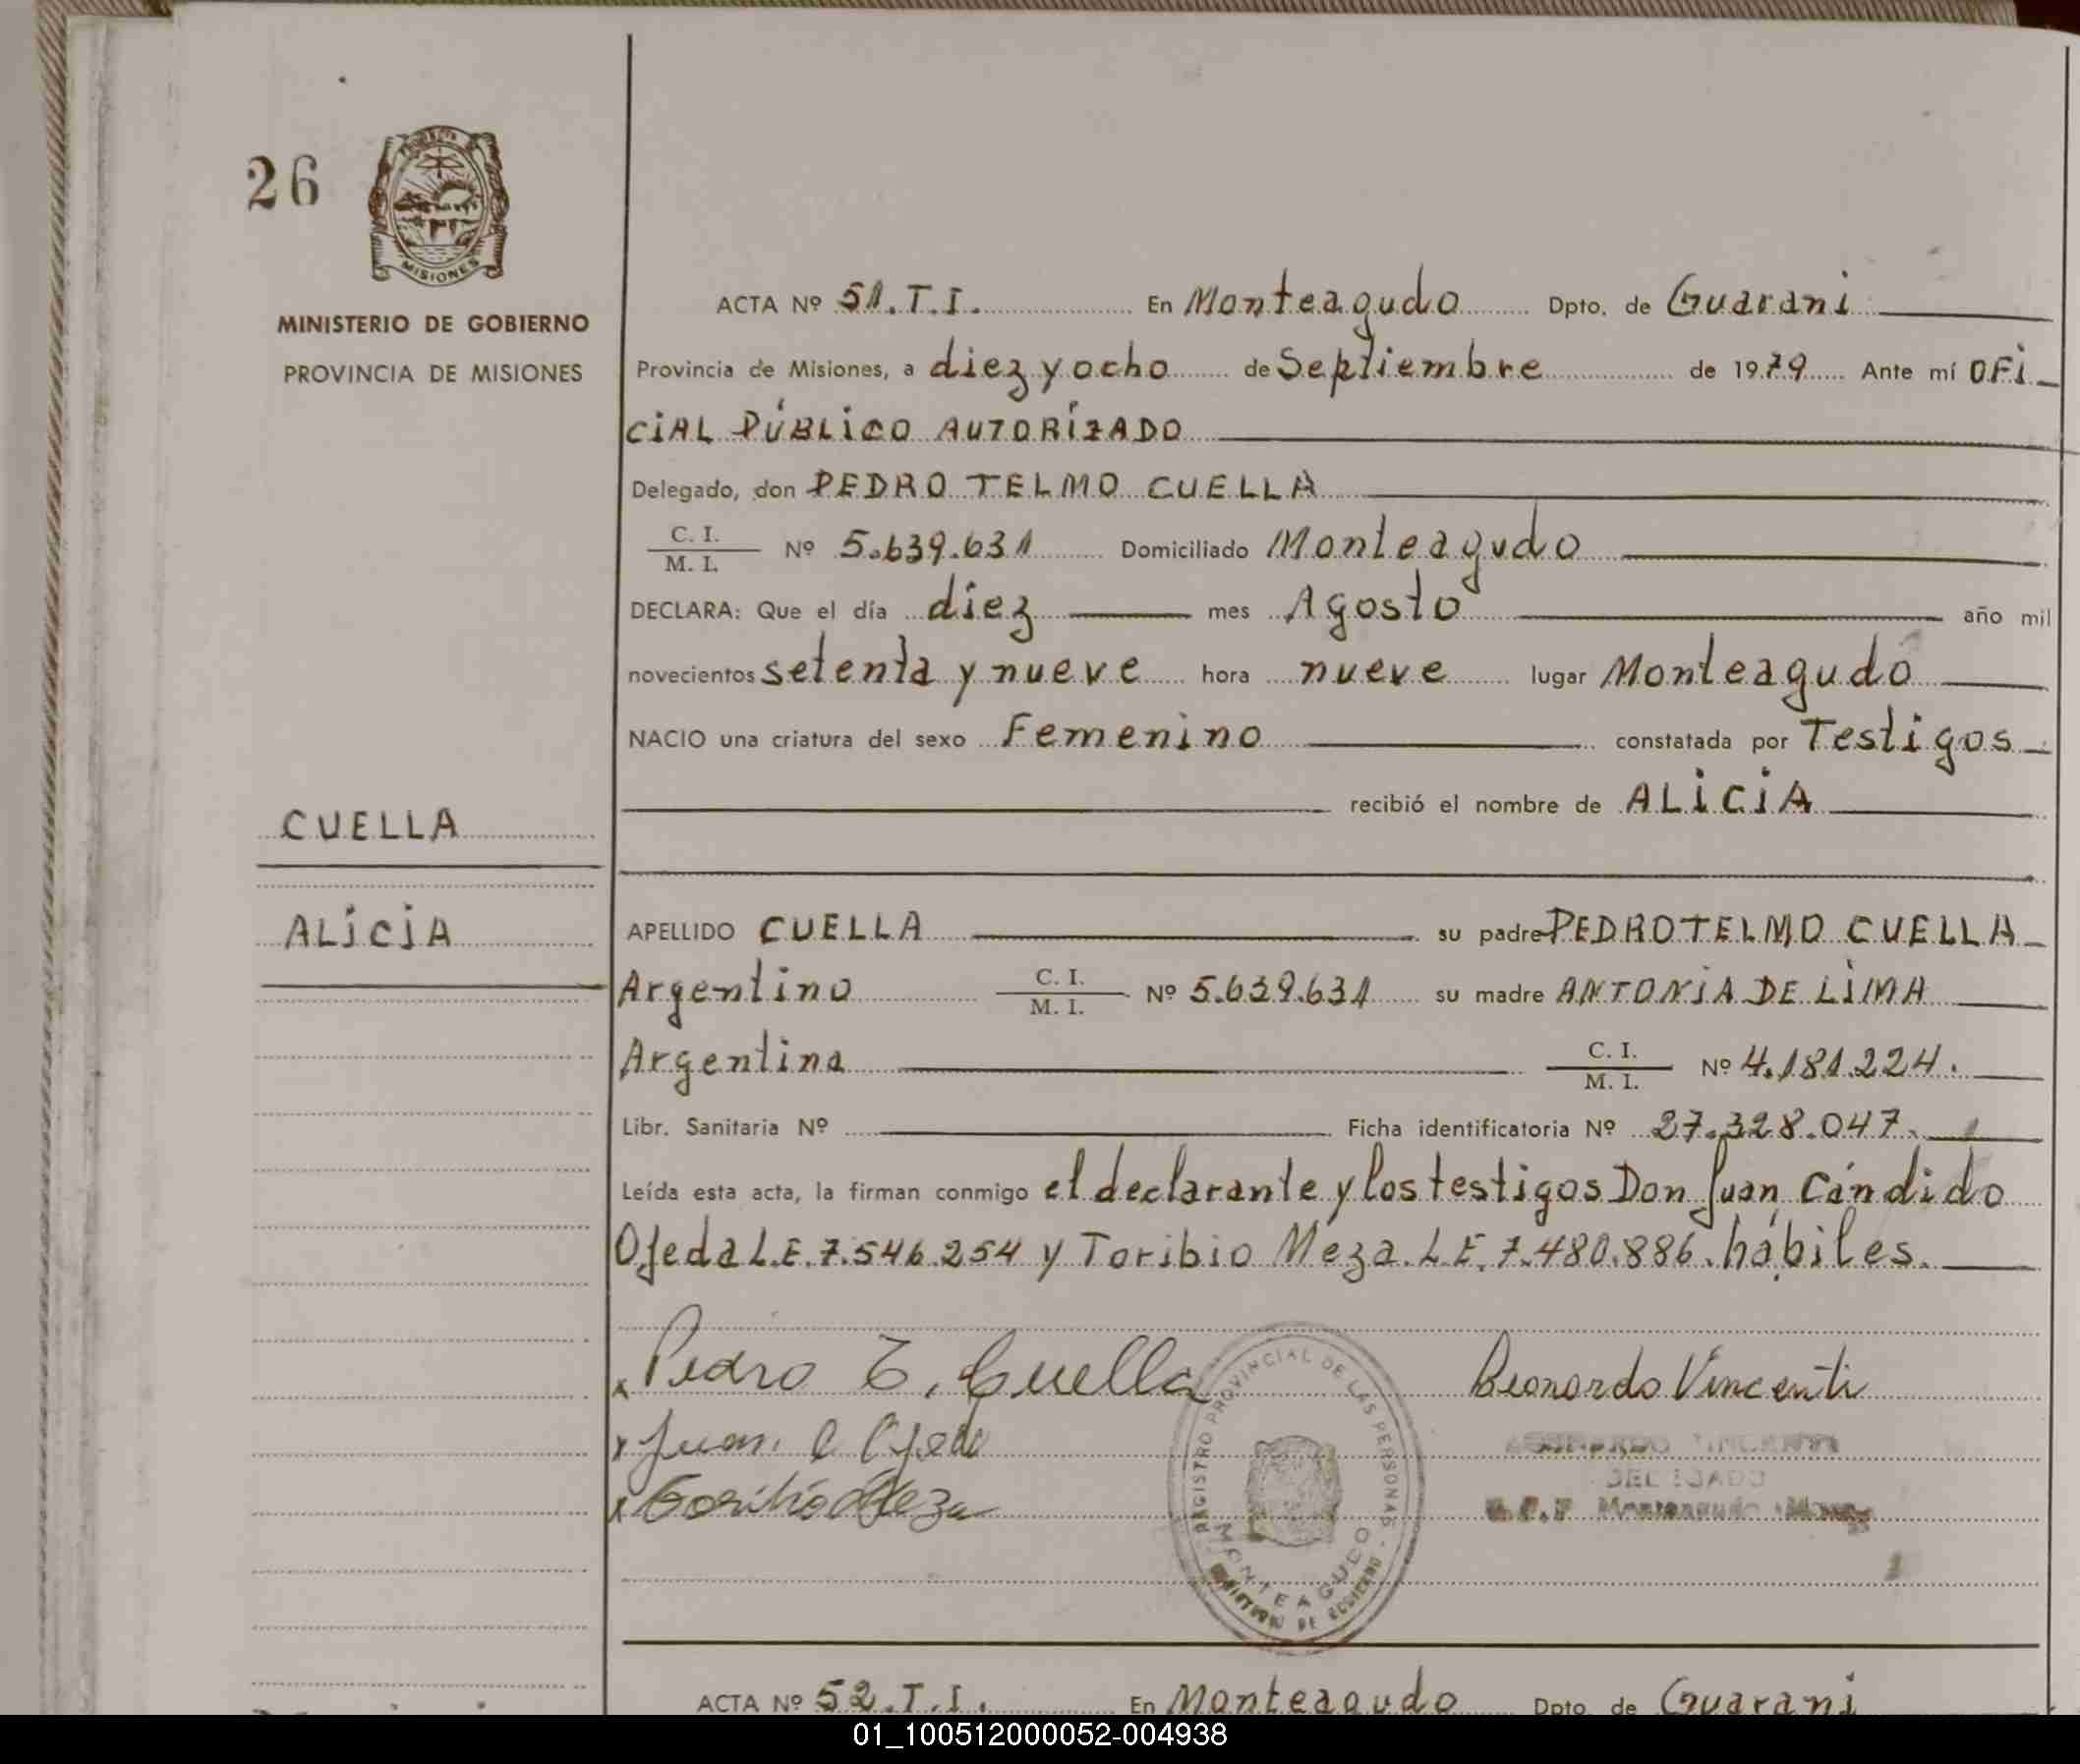 26
MISIONES
MINISTERIO DE GOBIERNO
PROVINCIA DE MISIONES
CUELLA
ALiCiA
ACTA Nº 51.T.I. En Monteagudo Dpto. de Guarani
Provincia de Misiones, a diez y ocho de Septiembre de 1979 Ante mí OFi
CiAL PÚBLiCO AUTORÍZADO
Delegado, don PEDRO TELMO CUELLA
C. I.
M. I. Nº 5.639.631 Domiciliado Monteagudo
DECLARA: Que el día diez mes Agosto año mil
novecientos setenta y nueve hora nueve lugar Monteagudo
NACIO una criatura del sexo Femenino constatada por Testigos
recibió el nombre de ALiCiA
APELLIDO CUELLA su padre PEDRO TELMO CUELLA
Argentino C. I.
M. I. Nº 5.639.631 su madre ANTONiA DE LiMA
Argentina C. I.
M. I. Nº 4.181.224.
Libr. Sanitaria Nº Ficha identificatoria Nº 27.328.047.
Leída esta acta, la firman conmigo el declarante y los testigos Don Juan Cándido
Ojeda L.E. 7.546.254 y Toribio Meza. L.E. 7.480.886. hábiles.
x Pedro T. Cuella
Leonardo Vincenti
x Juan C Ojeda
x Toribio Meza
REGISTRO PROVINCIAL DE LAS PERSONAS
MONTEAGUDO
MINISTERIO DE GOBIERNO
DELEGADO
Monteagudo
ACTA Nº 52.T.I. En Monteagudo Dpto de Guarani
01_100512000052-004938